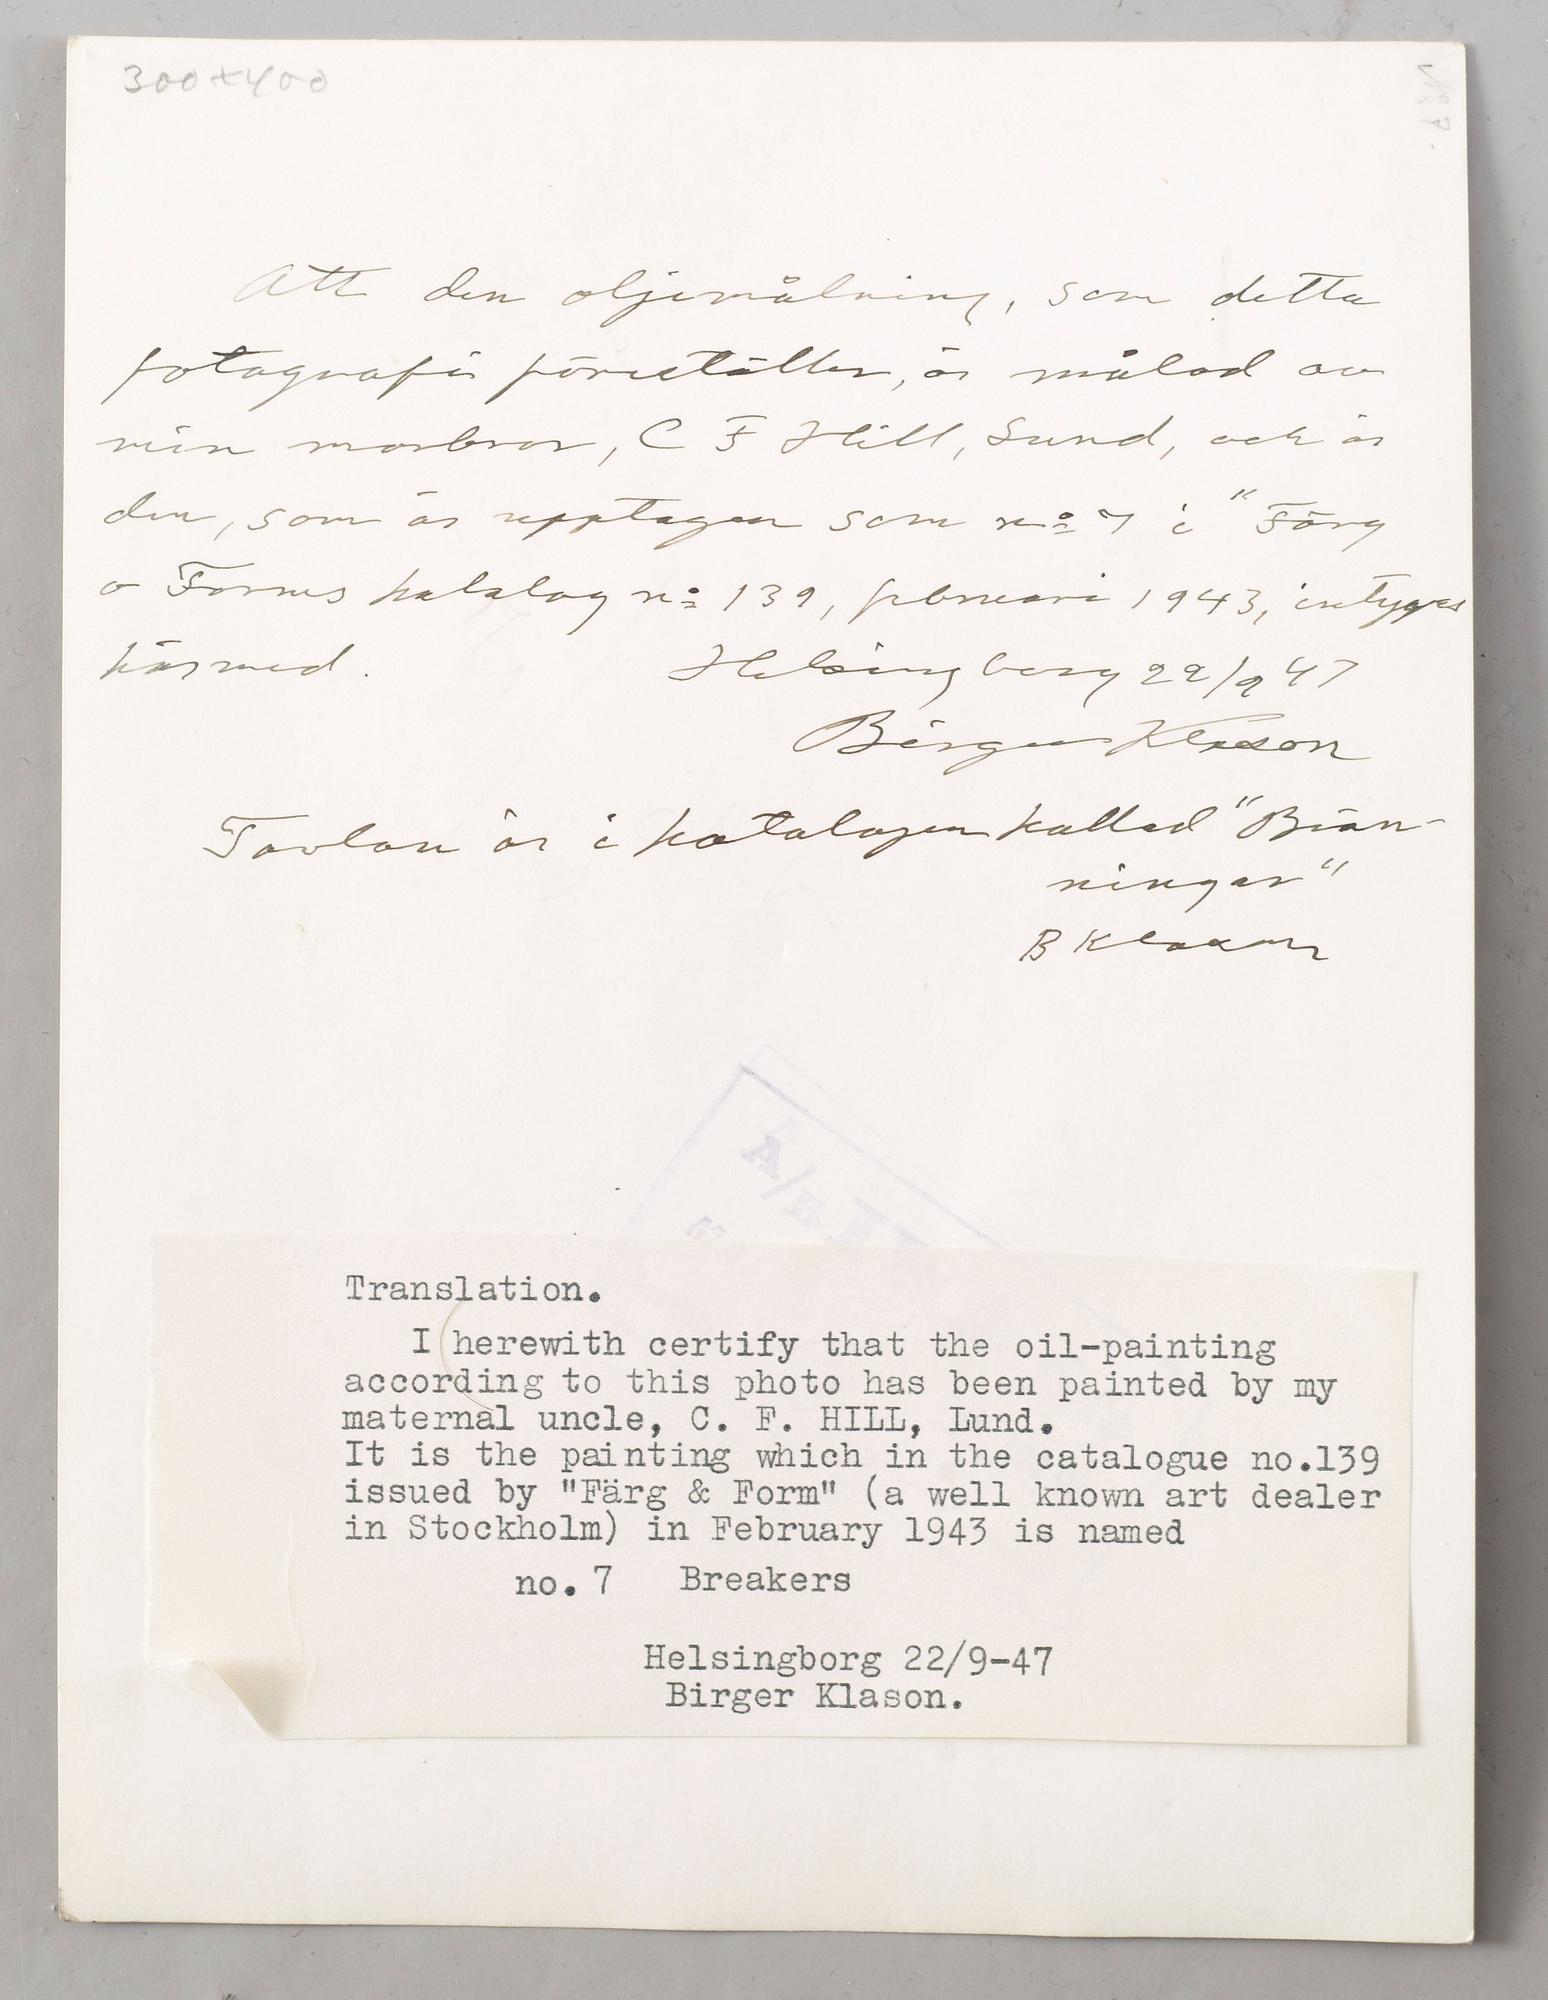 300×400
No 7.
Att den oljemålning, som detta
fotografi föreställer, är målad av
min morbror, C F Hill, Lund, och är
den, som är upptagen som no 7 i "Färg
o Forms katalog no 139, februari 1943, intygas
härmed. Helsingborg 22/9 47
Birger Klason
Tavlan är i katalogen kallad "Brän-
ningar"
B Klason
A/B
Translation.
I herewith certify that the oil-painting
according to this photo has been painted by my
maternal uncle, C. F. HILL, Lund.
It is the painting which in the catalogue no.139
issued by "Färg & Form" (a well known art dealer
in Stockholm) in February 1943 is named
no. 7 Breakers
Helsingborg 22/9-47
Birger Klason.